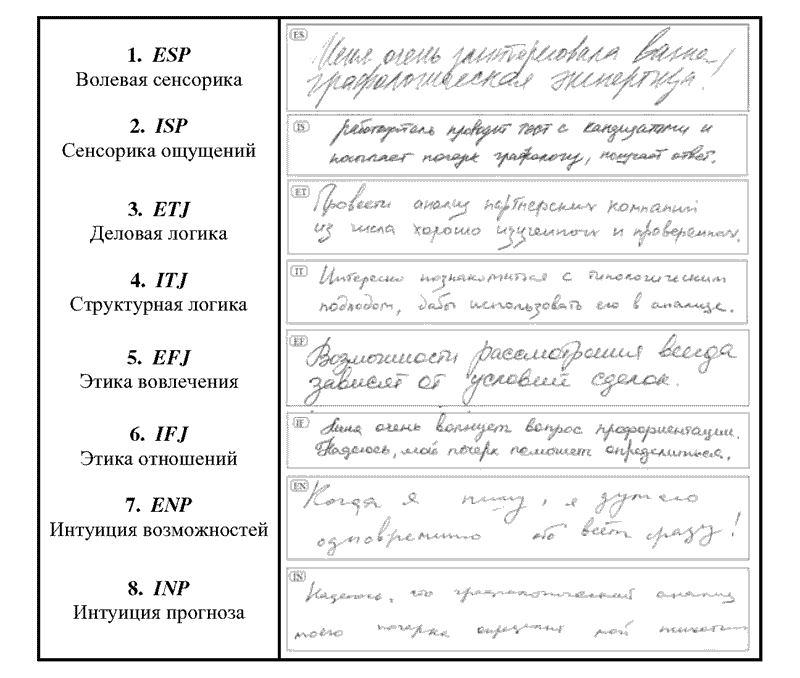 1. ESP
Волевая сенсорика
ES
Меня очень заинтересовала ваша
графологическая экспертиза!
2. ISP
Сенсорика ощущений
IS
работодатель проводит тест с кандидатами и
посылает почерк графологу, получает ответ.
3. ETJ
Деловая логика
ET
Провести анализ партнерских компаний
из числа хорошо изученных и проверенных.
4. ITJ
Структурная логика
IT
Интересно познакомиться с типологическим
подходом, дабы использовать его в анализе.
5. EFJ
Этика вовлечения
EF
Возможности рассмотрения всегда
зависят от условий сделок.
6. IFJ
Этика отношений
IF
очень волнует вопрос профориентации.
Надеюсь, мой почерк поможет определиться.
7. ENP
Интуиция возможностей
EN
Когда я пишу, я думаю
одновременно обо всём сразу!
8. INP
Интуиция прогноза
IN
Надеюсь, что графологический анализ
моего почерка определит мой психотип